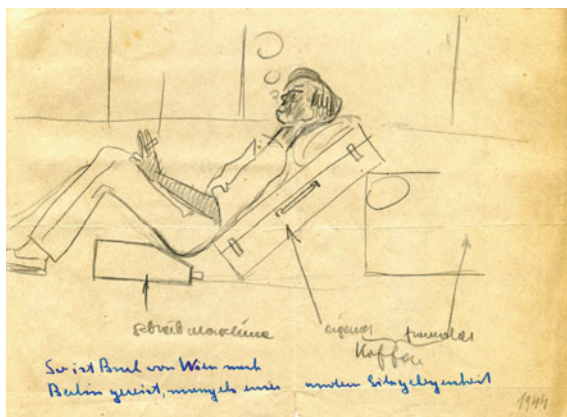 Schreibmaschine eigener fremder
Koffer
So ist Bruch von Wien nach
Berlin gereist, mangels einer andern Sitzgelegenheit
1944